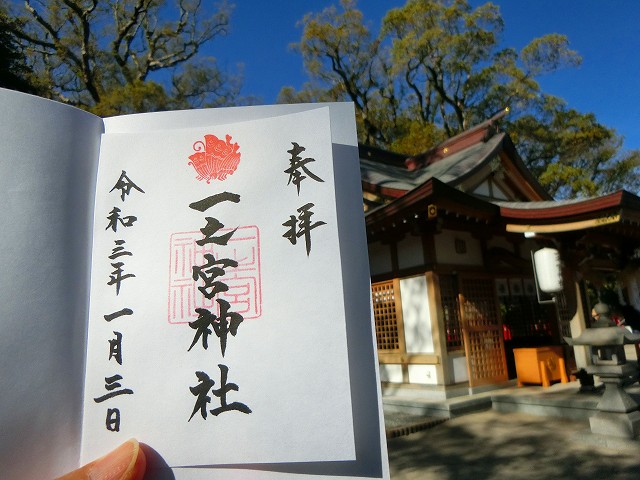 奉拝
一之宮神社
令和三年一月三日